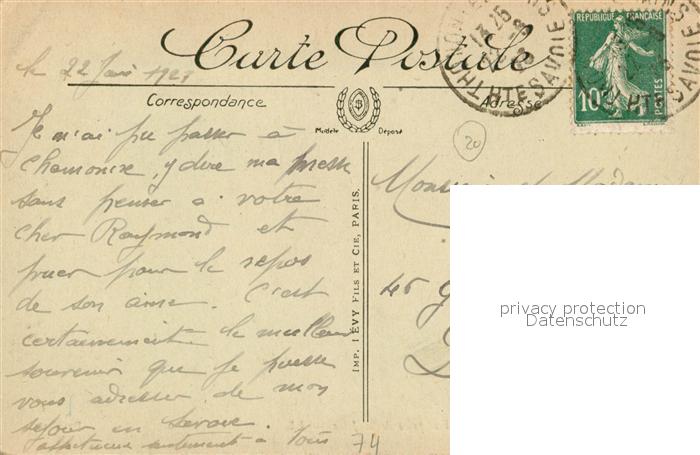 Carte Postale
le 22
Correspondance
Adresse
Modèle Déposé
RÉPUBLIQUE FRANÇAISE
10
POSTES
THON
HTE SAVOIE
13 25
HTE SAVOIE
20
Je n'ai pu passer à
Chamonix, y dire ma messe
sans penser à votre
cher Raymond et
prier pour le repos
de son âme. C'est
certainement le meilleur
souvenir que je puisse
vous adresser de mon
séjour en Savoie.
affectueusement à vous
74
IMP. LEVY FILS ET CIE, PARIS.
Monsieur et Madame
46
privacy protection
Datenschutz